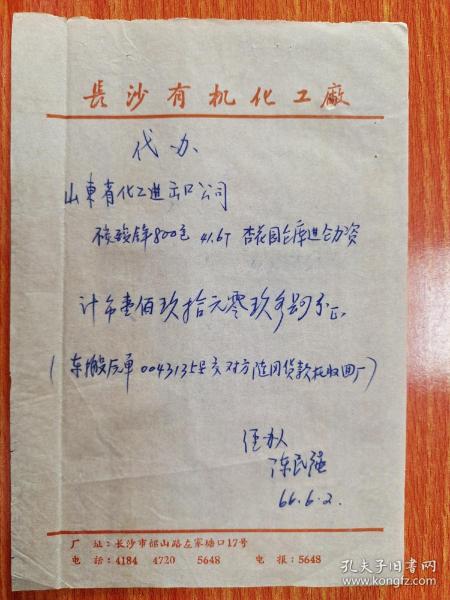 長沙有机化工廠
代办
山東省化工進出口公司
酸鋅800包 41.6T 杏花园仓库進仓力资
计币壹佰玖拾元零玖角
(东搬瓦单0043135号交对方随同货款托收回厂)
经办人
陈民强
66.6.2.
厂 址：长沙市韶山路左家塘口17号
电 話：4184 4720 5648 电 报：5648
孔夫子旧书网
www.kongfz.com